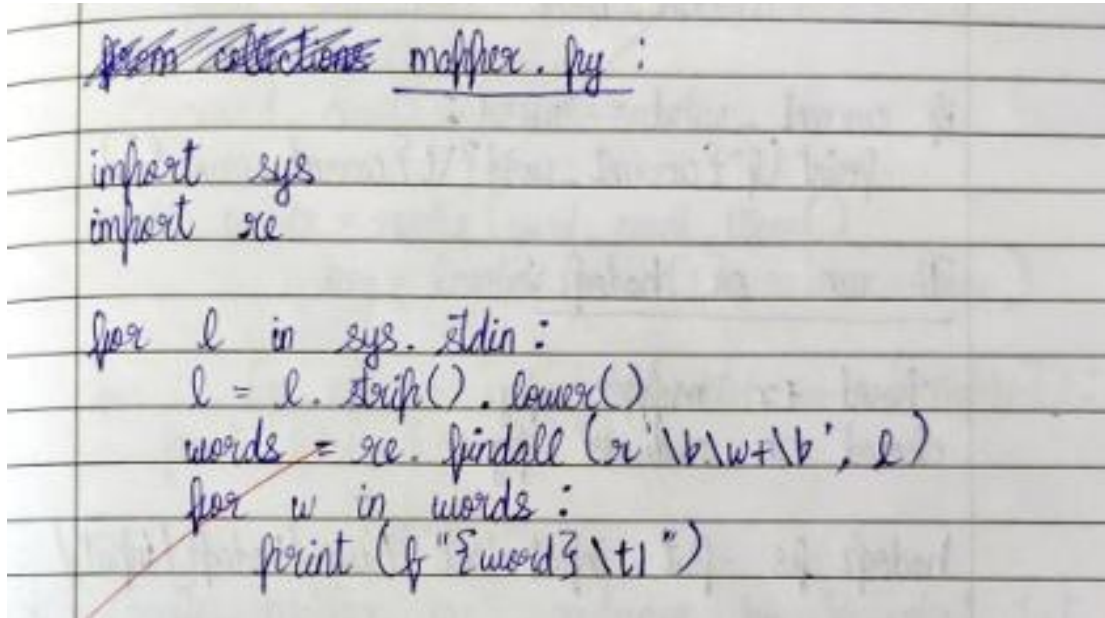 from collections mapper.py :
import sys
import re
for l in sys.stdin :
l = l.strip().lower()
words = re.findall (r'\b\w+\b', l)
for w in words :
print (f"{word}\t1")